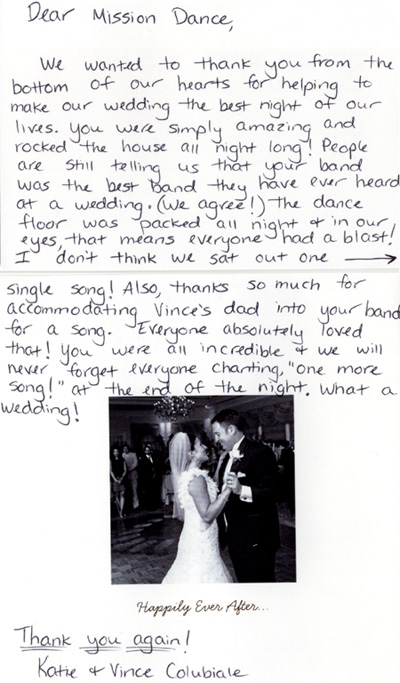 Dear Mission Dance,
We wanted to thank you from the
bottom of our hearts for helping to
make our wedding the best night of our
lives. You were simply amazing and
rocked the house all night long! People
are still telling us that your band
was the best band they have ever heard
at a wedding. (We agree!) The dance
floor was packed all night & in our
eyes, that means everyone had a blast!
I don't think we sat out one →
single song! Also, thanks so much for
accommodating Vince's dad into your band
for a song. Everyone absolutely loved
that! You were all incredible & we will
never forget everyone chanting, "one more
song!" at the end of the night. What a
wedding!
Happily Ever After...
Thank you again!
Katie & Vince Colubiale